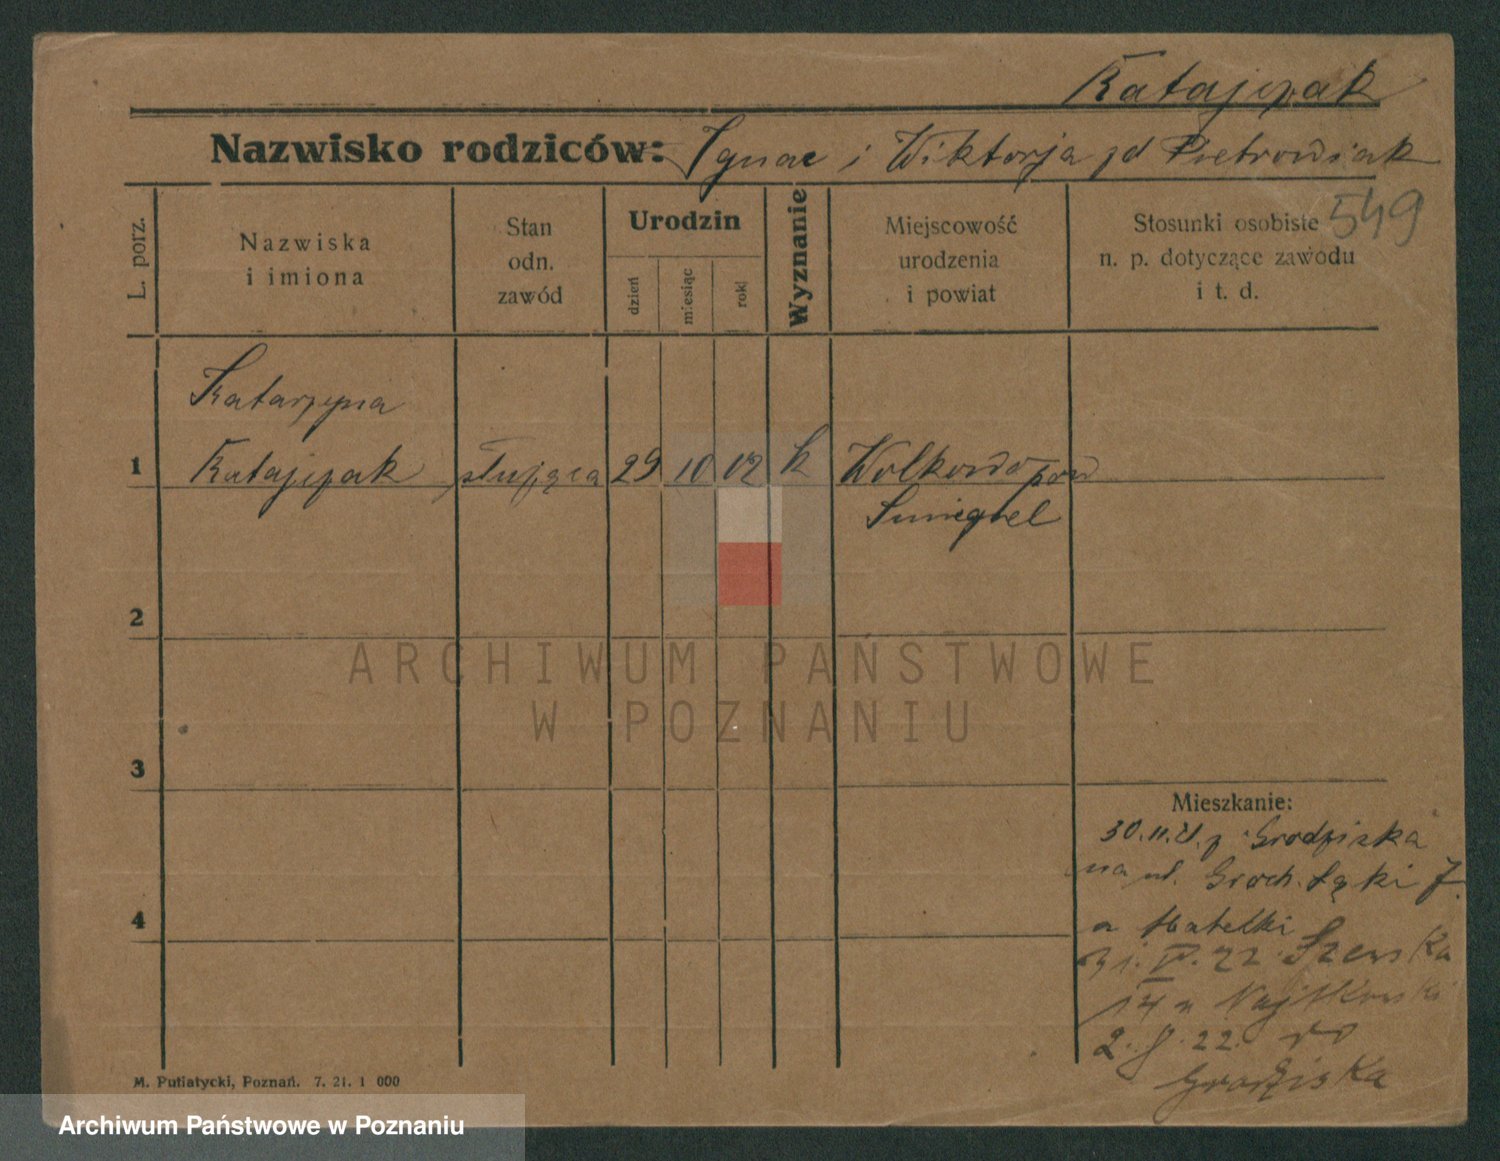 Katajczak
Nazwisko rodziców: Ignac i Wiktorja zd Pietrowiak
549
L. porz.
Nazwiska
i imiona
Stan
odn.
zawód
Urodzin
dzień
miesiąc
rok
Wyznanie
Miejscowość
urodzenia
i powiat
Stosunki osobiste
n. p. dotyczące zawodu
i t. d.
Katarzyna
1 Katajczak służąca 29 10 02 k Wolkowo pow
Smigiel
2
ARCHIWUM PAŃSTWOWE
W POZNANIU
3
Mieszkanie:
30.11.21. z Grodziska
na ul. Groch. Łąki 7.
4
a Matelki
31. IV. 22. Szewska
14 u
2. 22. do
Grodziska
M. Putiatycki, Poznań. 7. 21. 1 000
Archiwum Państwowe w Poznaniu